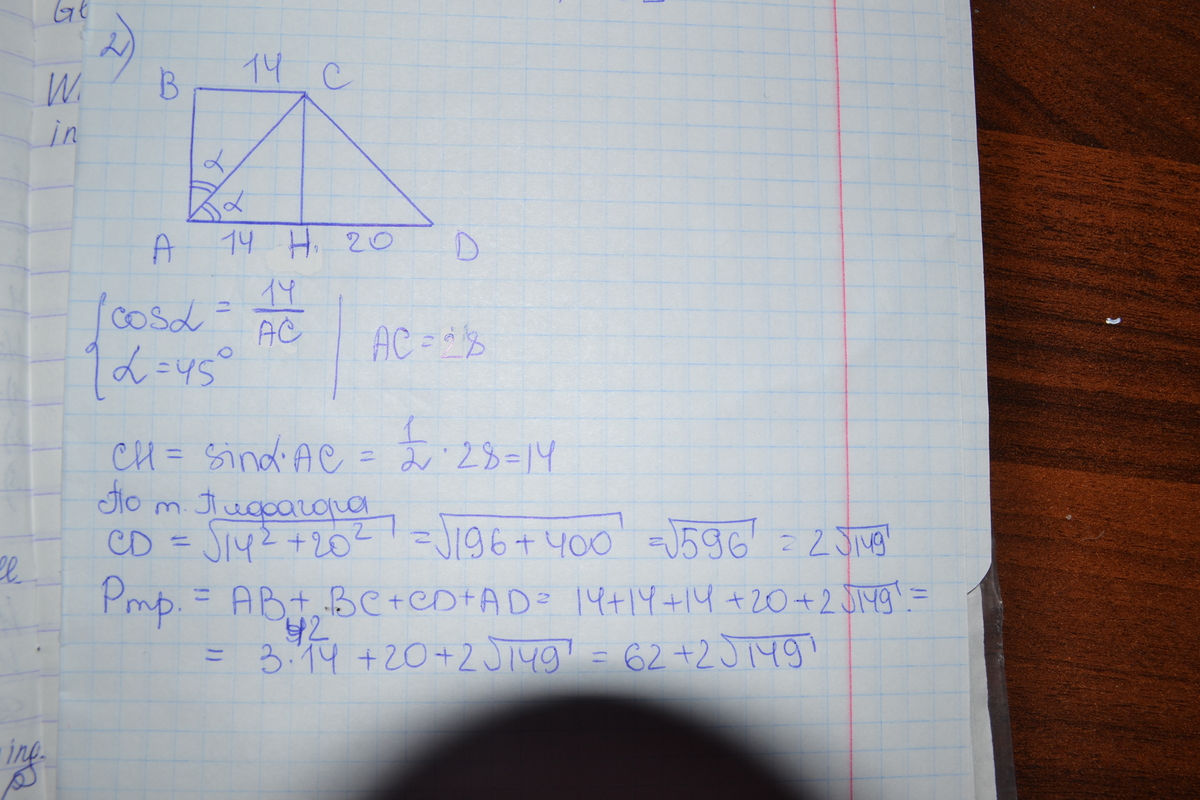 Gl
W
in
2)
14
B C
α
α
A 14 H 20 D
cosα = 14/AC
α = 45°
AC = 28
CH = sinα·AC = 1/2 · 28 = 14
По т. Пифагора
CD = √14² + 20² = √196 + 400 = √596 = 2√149
Pтр. = AB + BC + CD + AD = 14 + 14 + 14 + 20 + 2√149 =
42
= 3·14 + 20 + 2√149 = 62 + 2√149
ing.